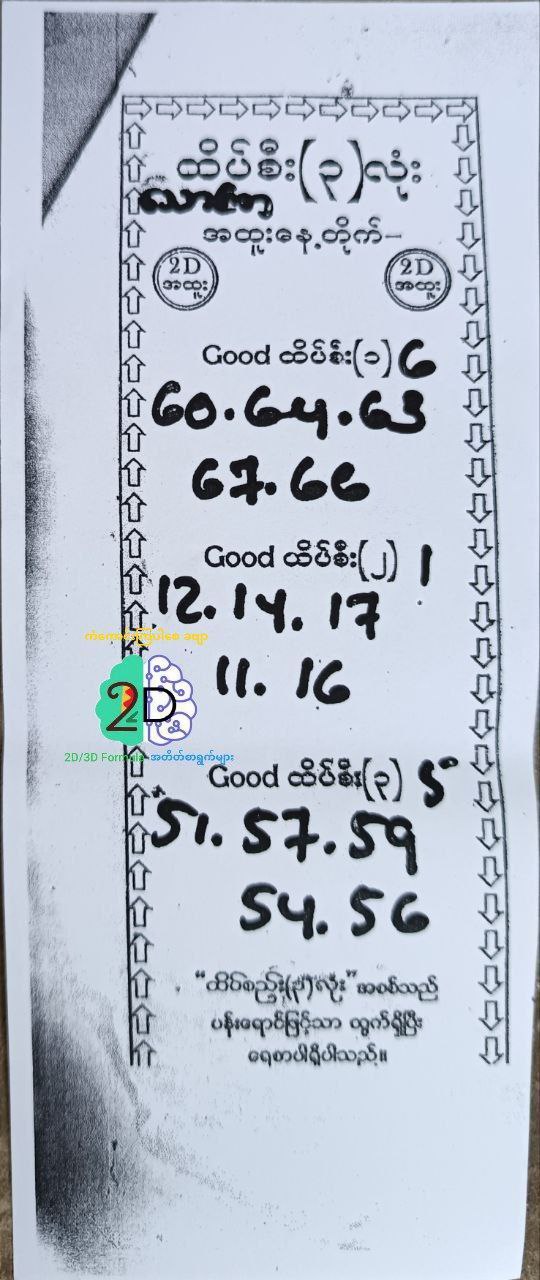 ထိပ်စီး(၃)လုံး
သောကြာ
အထူးနေ့တိုက်-
2D
အထူး
2D
အထူး
Good ထိပ်စီး(၁) 6
60. 64. 63
67. 66
Good ထိပ်စီး(၂) 1
12. 14. 17
11. 16
ကံကောင်းကြပါစေ ခဗျာ
2D
2D/3D Formula အတိတ်စာရွက်များ
Good ထိပ်စီး(၃) 5
51. 57. 59
54. 56
"ထိပ်စည်း(၃)လုံး" အစစ်သည်
ပန်းရောင်ဖြင့်သာ ထွက်ရှိပြီး
ရေစာပါရှိပါသည်။